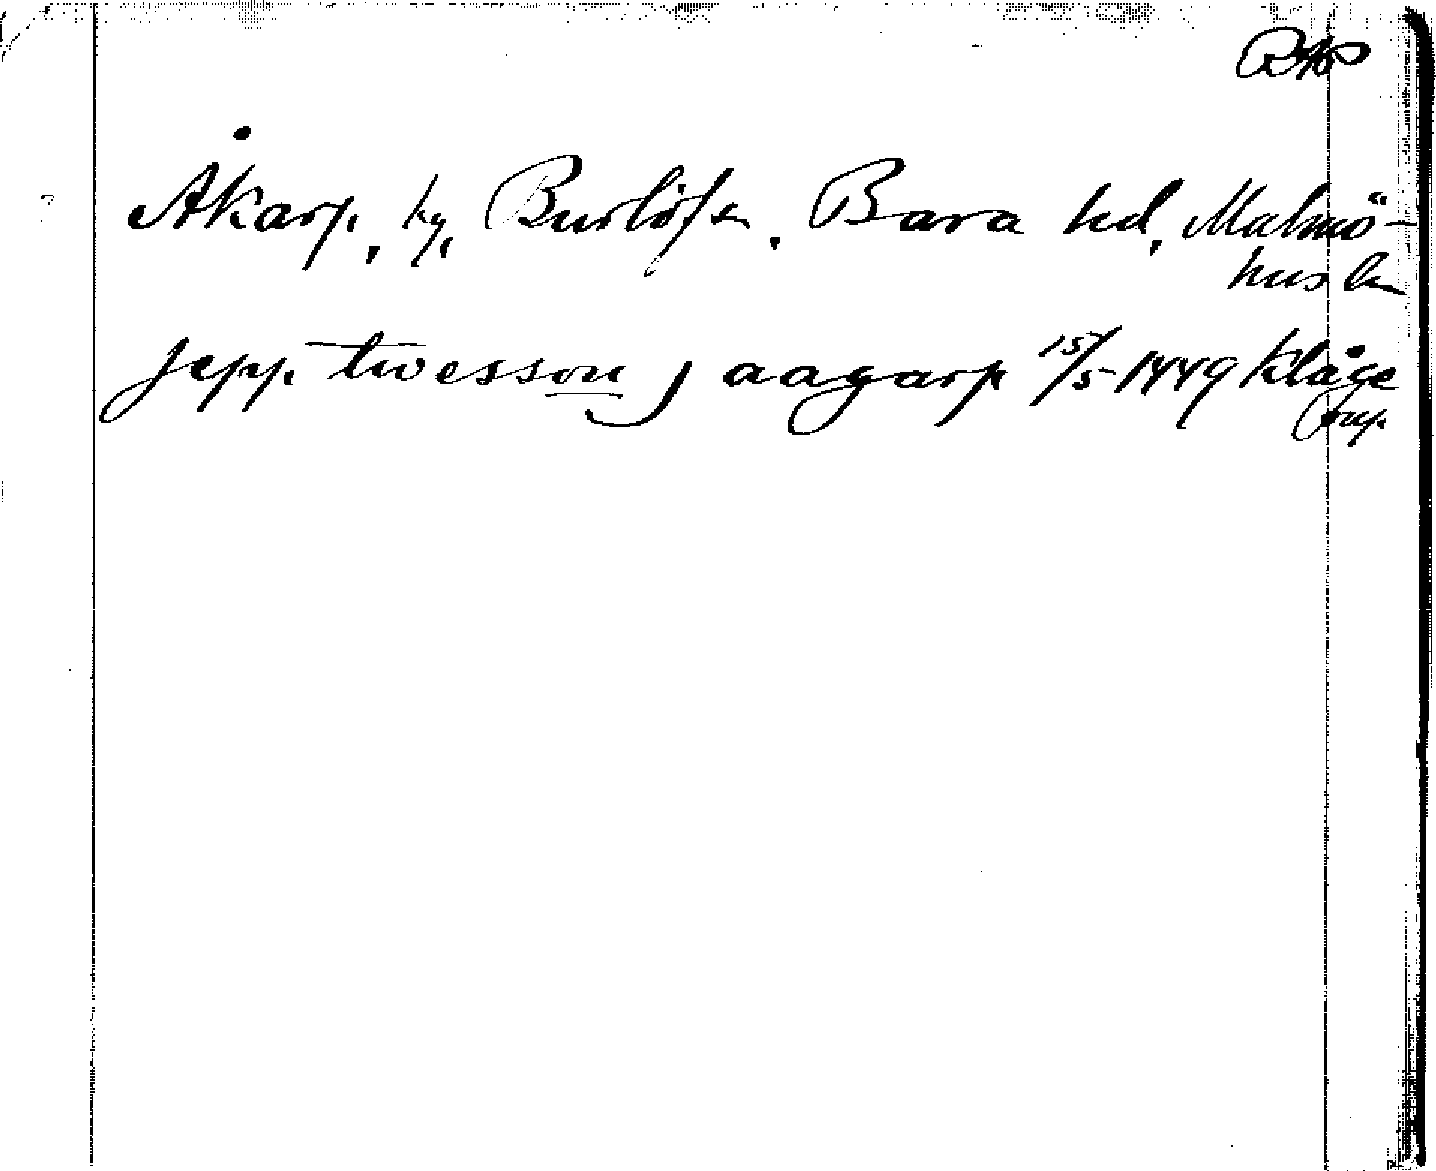 Åkarp, by, Burlöfs sn, Bara hd, Malmö-
hus län
Jepp twesson j aagarp 15/5 1449 Klåge
rup.